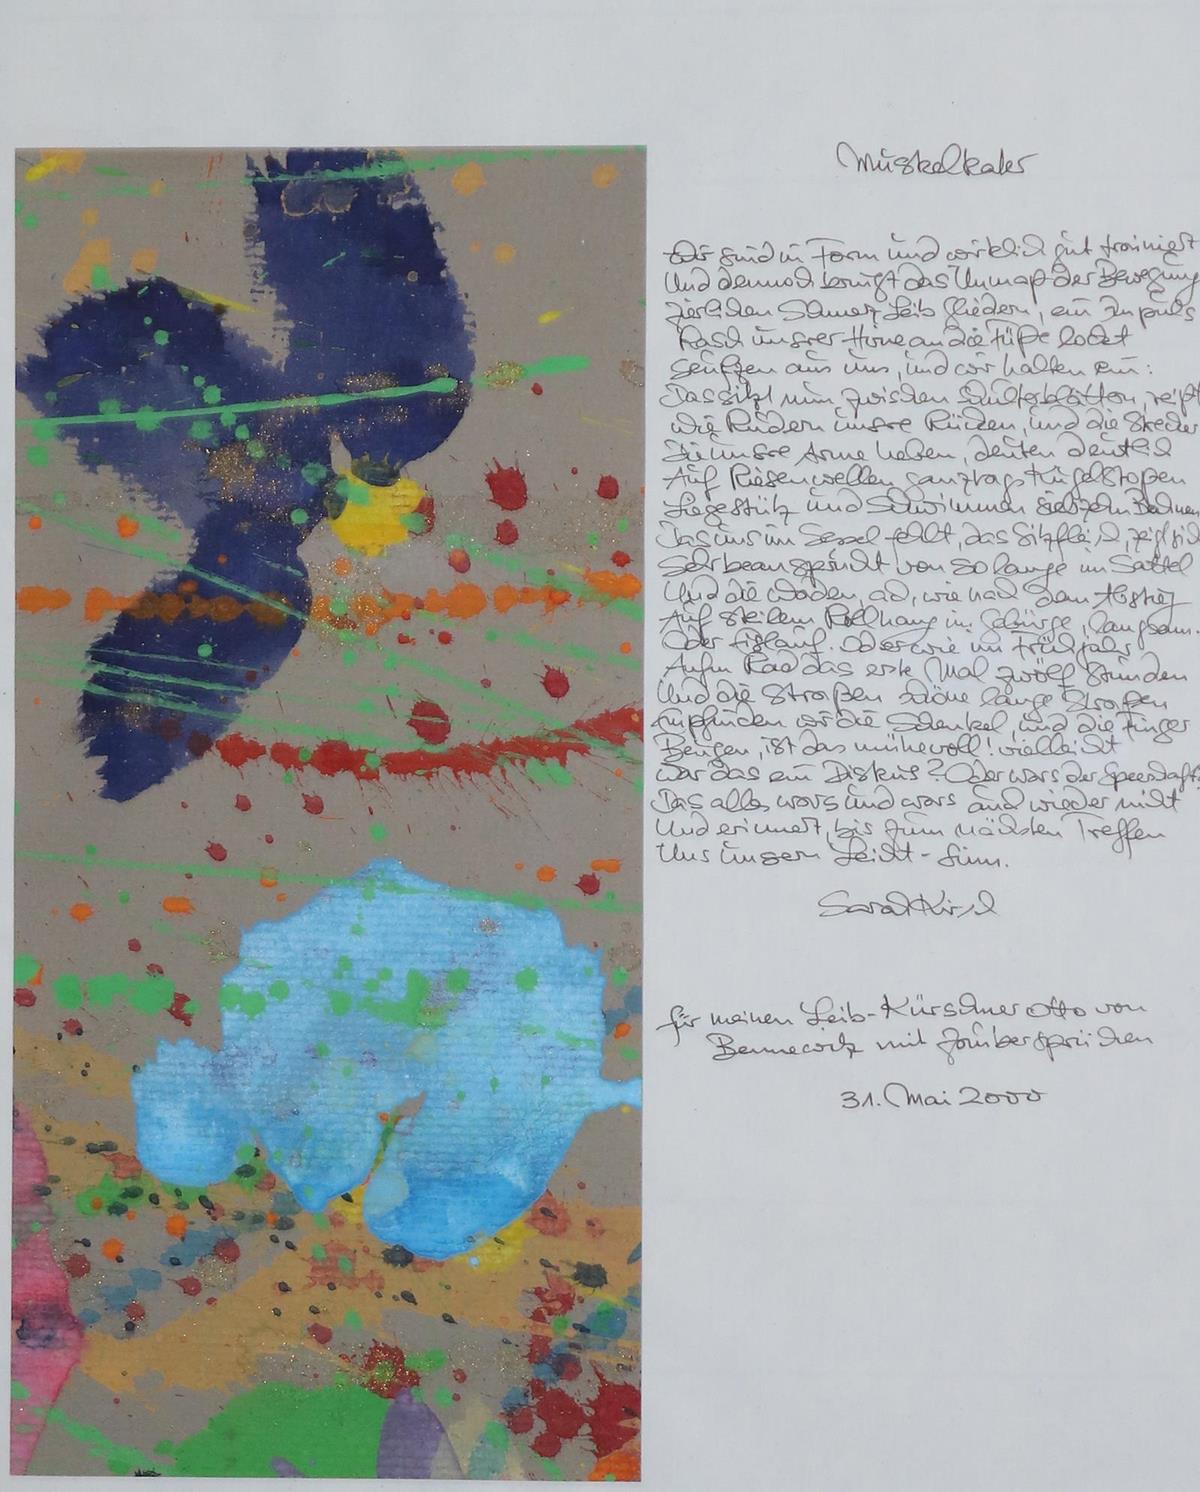 Muskelkater
Wir sind in Form und wirklich gut trainiert
Und dennoch bringt das Unmaß der Bewegung
Zierlichen Schmerz Leib Gliedern, ein Impuls
Rasch unsrer Hirne an die Füße lockt
Seufzen aus uns, und wir halten ein:
Das sitzt nun zwischen Schulterblättern, reißt
Wie Rudern unsre Rücken, und die Stecher
Die unsre Arme haben, deuten deutlich
Auf Riesenwellen ganztags Kugelstoßen
Liegestütz und Schwimmen siebzehn Bahnen
Das uns im Sessel fehlt, das Sitzfleisch, zeigt sich
Sehr beansprucht von so lange im Sattel
Und die Waden, ach, wie nach dem Abstieg
Auf steilem Rollhang im Gebürge, langsam.
Oder Eislauf. Oder wie im Frühjahr
Aufm Rad das erste Mal zwölf Stunden
Und die Straßen schöne lange Straßen
Empfinden wir die Schenkel, und die Finger
Beugen, ist das mühevoll! vielleicht
War das ein Diskus? Oder wars der Speerschaft?
Das alles wars und wars auch wieder nicht
Und erinnert, bis zum nächsten Treffen
Uns unsern Leicht-Sinn.
Sarah Kirsch
für meinen Leib-Kürschner Otto von
mit Zaubersprüchen
31. Mai 2000